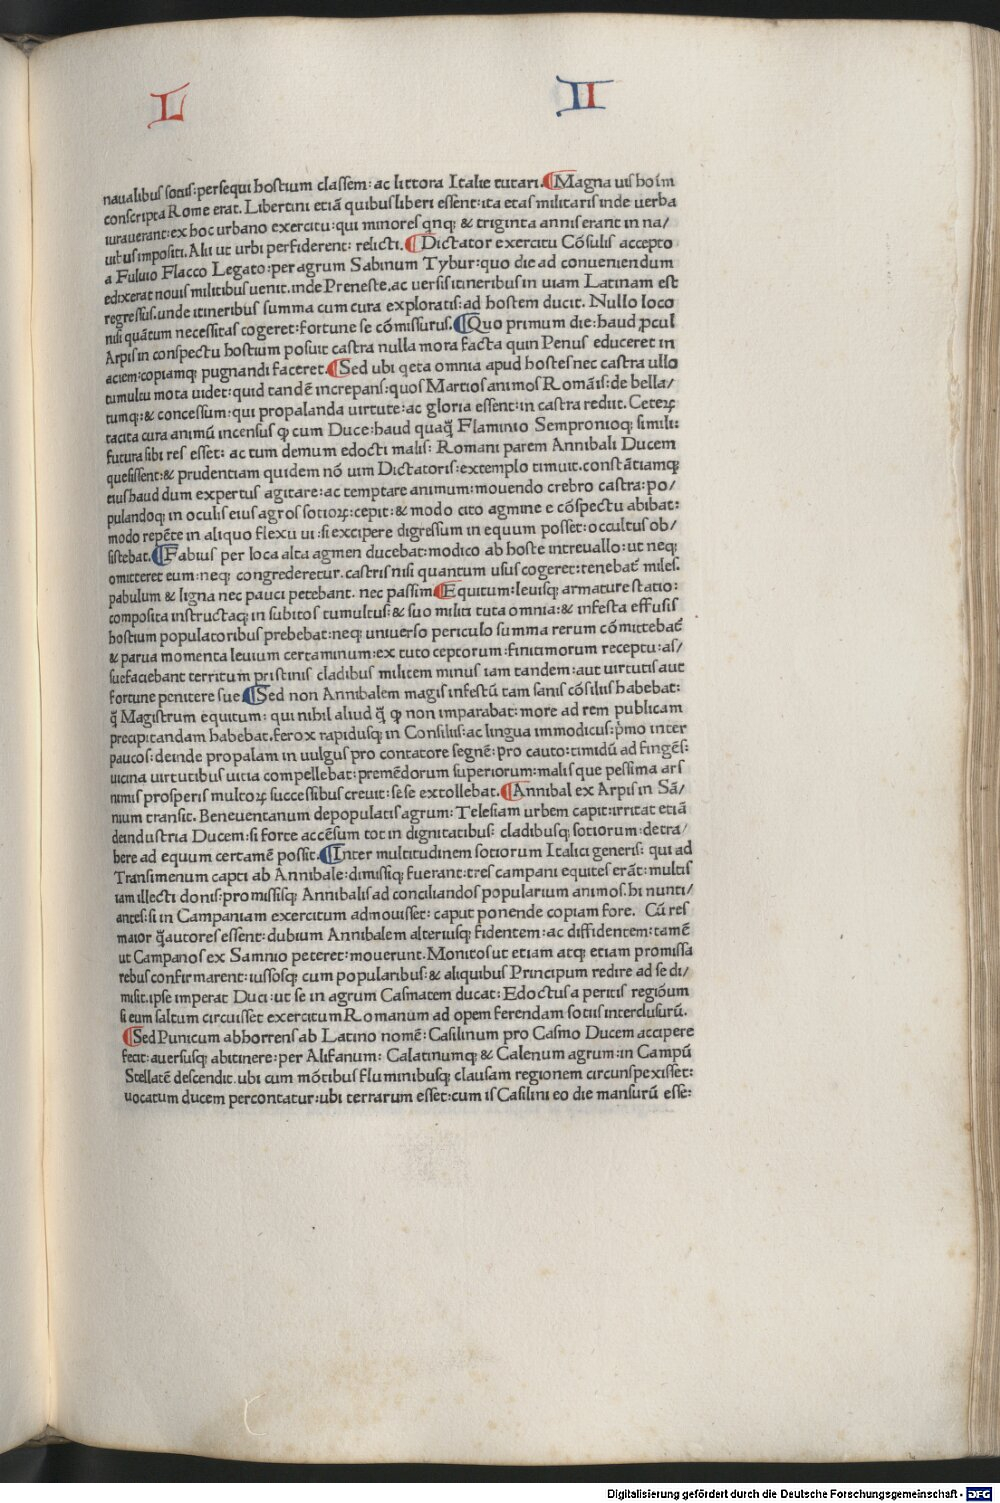 L II
naualibus sotiis: persequi hostium classem: ac littora Italie tutari. Magna uis hoīm
conscripta Rome erat. Libertini etiā quibus liberi essent: ita etas militaris inde uerba
iurauerant: ex hoc urbano exercitu: qui minores qnq; & triginta annis erant in na/
uibus impositi. Alii ut urbi perfiderent: relicti. Dictator exercitu Cōsulis accepto
a Fuluio Flacco Legato: per agrum Sabinum Tybur: quo die ad conueniendum
edixerat nouis militibus uenit. inde Preneste. ac uersis itineribus in uiam Latinam est
regressus. unde itineribus summa cum cura exploratis: ad hostem ducit. Nullo loco
nisi quātum necessitas cogeret: fortune se cōmissurus. Quo primum die: haud ꝓcul
Arpis in conspectu hostium posuit castra nulla mora facta quin Penus educeret in
aciem: copiamq; pugnandi faceret. Sed ubi qeta omnia apud hostes nec castra ullo
tumultu mota uidet: quid tandē increpans: quos Martios animos Romāis: de bella/
tumq;: & concessum: qui propalanda uirtute: ac gloria essent: in castra rediit. Ceteꝝ
tacita cura animū incensus ꝙ cum Duce: haud quaq̄ Flaminio Sempronioq; simili:
futura sibi res esset: ac tum demum edocti malis: Romani parem Annibali Ducem
quesissent: & prudentiam quidem nō uim Dictatoris: extemplo timuit. constātiamq;
eius haud dum expertus agitare: ac temptare animum: mouendo crebro castra: po/
pulandoq; in oculis eius agros sotioꝝ: cepit: & modo cito agmine e cōspectu abibat:
modo repēte in aliquo flexu ui: si excipere digressum in equum posset: occultus ob/
sistebat. Fabius per loca alta agmen ducebat: modico ab hoste intreuallo: ut neq;
omitteret eum: neq; congrederetur. castris nisi quantum usus cogeret: tenebat̄ miles.
pabulum & ligna nec pauci petebant. nec passim Equitum: leuisq; armature statio:
composita instructaq; in subitos tumultus: & suo militi tuta omnia: & infesta effusis
hostium populatoribus prebebat: neq; uniuerso periculo summa rerum cōmittebat̄
& parua momenta leuium certaminum: ex tuto ceptorum: finitimorum receptu: as/
suefaciebant territum pristinis cladibus militem minus iam tandem: aut uirtutis aut
fortune penitere sue Sed non Annibalem magis infestū tam sanis cōsiliis habebat:
q̄ Magistrum equitum: qui nihil aliud q̄ ꝙ non imparabat: more ad rem publicam
precipitandam habebat. ferox rapidusq; in Consiliis: ac lingua immodicus: p̄mo inter
paucos: deinde propalam in uulgus pro contatore segnē: pro cauto: timidū ad fingēs:
uicina uirtutibus uitia compellebat: premēdorum superiorum: malis que pessima ars
nimis prosperis multoꝝ successibus creuit: sese extollebat. Annibal ex Arpis in Sā/
nium transit. Beneuentanum depopulatis agrum: Telesiam urbem capit: irritat etiā
deindustria Ducem: si forte accēsum tot in dignitatibus: cladibusq; sotiorum: detra/
here ad equum certamē possit. Inter multitudinem sotiorum Italici generis: qui ad
Transimenum capti ab Annibale: dimissiq; fuerant: tres campani equites erāt: multis
iam illecti donis: promissisq; Annibalis ad conciliandos popularium animos. hi nunti/
antes: si in Campaniam exercitum admouisset: caput ponende copiam fore. Cū res
maior q̄ autores essent: dubium Annibalem alteriusq; fidentem: ac diffidentem: tamē
ut Campanos ex Samnio peteret: mouerunt. Monitos ut etiam atq; etiam promissa
rebus confirmarent: iussosq; cum popularibus: & aliquibus Principum redire ad se di/
misit. ipse imperat Duci: ut se in agrum Casmatem ducat: Edoctus a peritis regiōum
si eum saltum circuisset exercitum Romanum ad opem ferendam sotiis interclusurū.
Sed Punicum abhorrens ab Latino nomē: Casilinum pro Casmo Ducem accipere
fecit: auersusq; abitinere: per Alifanum: Calatinumq; & Calenum agrum: in Campū
Stellatē descendit. ubi cum mōtibus fluminibusq; clausam regionem circunspexisset:
uocatum ducem percontatur: ubi terrarum esset: cum is Casilini eo die mansurū esse:
Digitalisierung gefördert durch die Deutsche Forschungsgemeinschaft - DFG